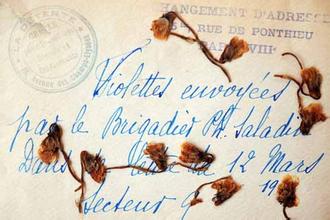 LA DÉTENTE
Avenue des Champs-Élysées
CHANGEMENT D'ADRESSE
RUE DE PONTHIEU
PARIS VIIIᵉ
Violettes envoyées
par le Brigadier Ph. Saladin
Dans 12 Mars
19
Secteur 9